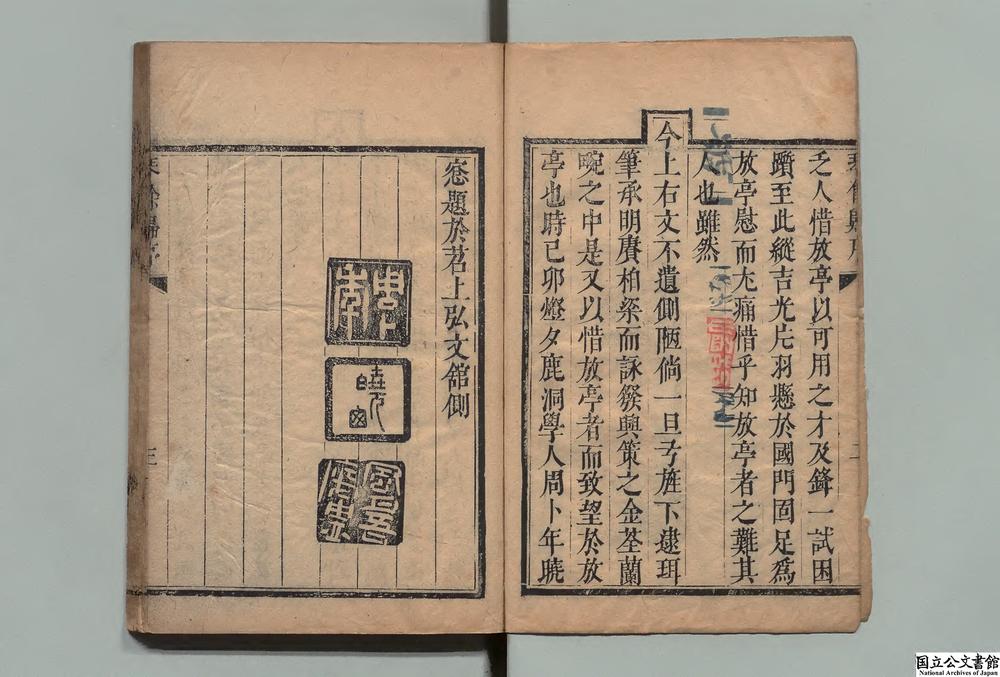 乏人惜放亭以可用之才及鋒一試困
躓至此縱吉光片羽懸於國門固足爲
放亭慰而尢痛惜乎知放亭者之難其
人也雖然
今上右文不遺側陋倘一旦弓旌下逮珥
筆承明賡柏梁而詠簇興策之金荃蘭
畹之中是又以惜放亭者而致望於放
亭也時己卯燈夕鹿洞學人周卜年曉
窓題於苕上弘文舘側
三
国立公文書館
National Archives of Japan